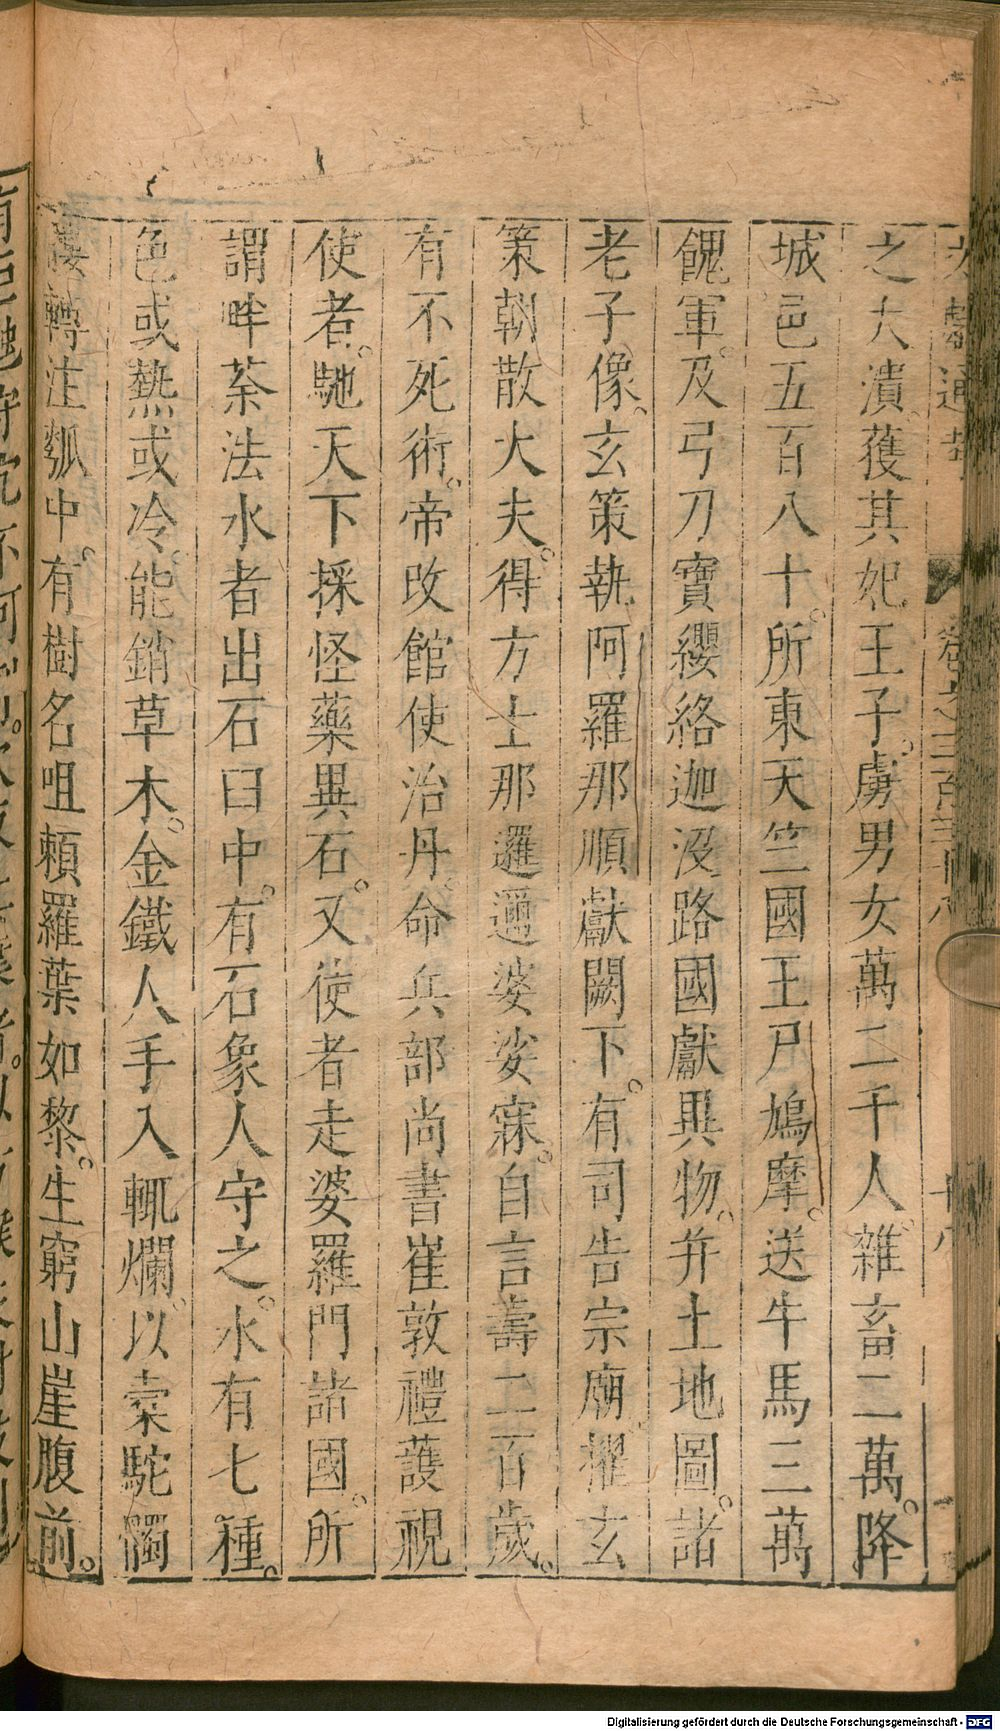 文獻通考 卷之三百三十八 十八
之大潰。獲其妃王子。虜男女萬二千人。雜畜二萬。降
城邑五百八十。所東天竺國王尸鳩摩。送牛馬三萬
餽軍。及弓刀寶纓絡迦沒路國獻異物。并土地圖。諸
老子像。玄策執阿羅那順獻闕下。有司告宗廟。擢玄
策朝散大夫。得方士那邏邇婆娑寐。自言壽二百歲。
有不死術。帝改館使治丹。命兵部尚書崔敦禮護視
使者。馳天下採怪藥異石。又使者走婆羅門諸國。所
謂畔茶法水者出石臼中。有石象人守之。水有七種。
色或熱或冷。能銷草木。金鐵人手入輒爛。以橐駝髑
髏轉注瓠中。有樹名咀賴羅葉如黎。生窮山崖腹前。
Digitalisierung gefördert durch die Deutsche Forschungsgemeinschaft - DFG